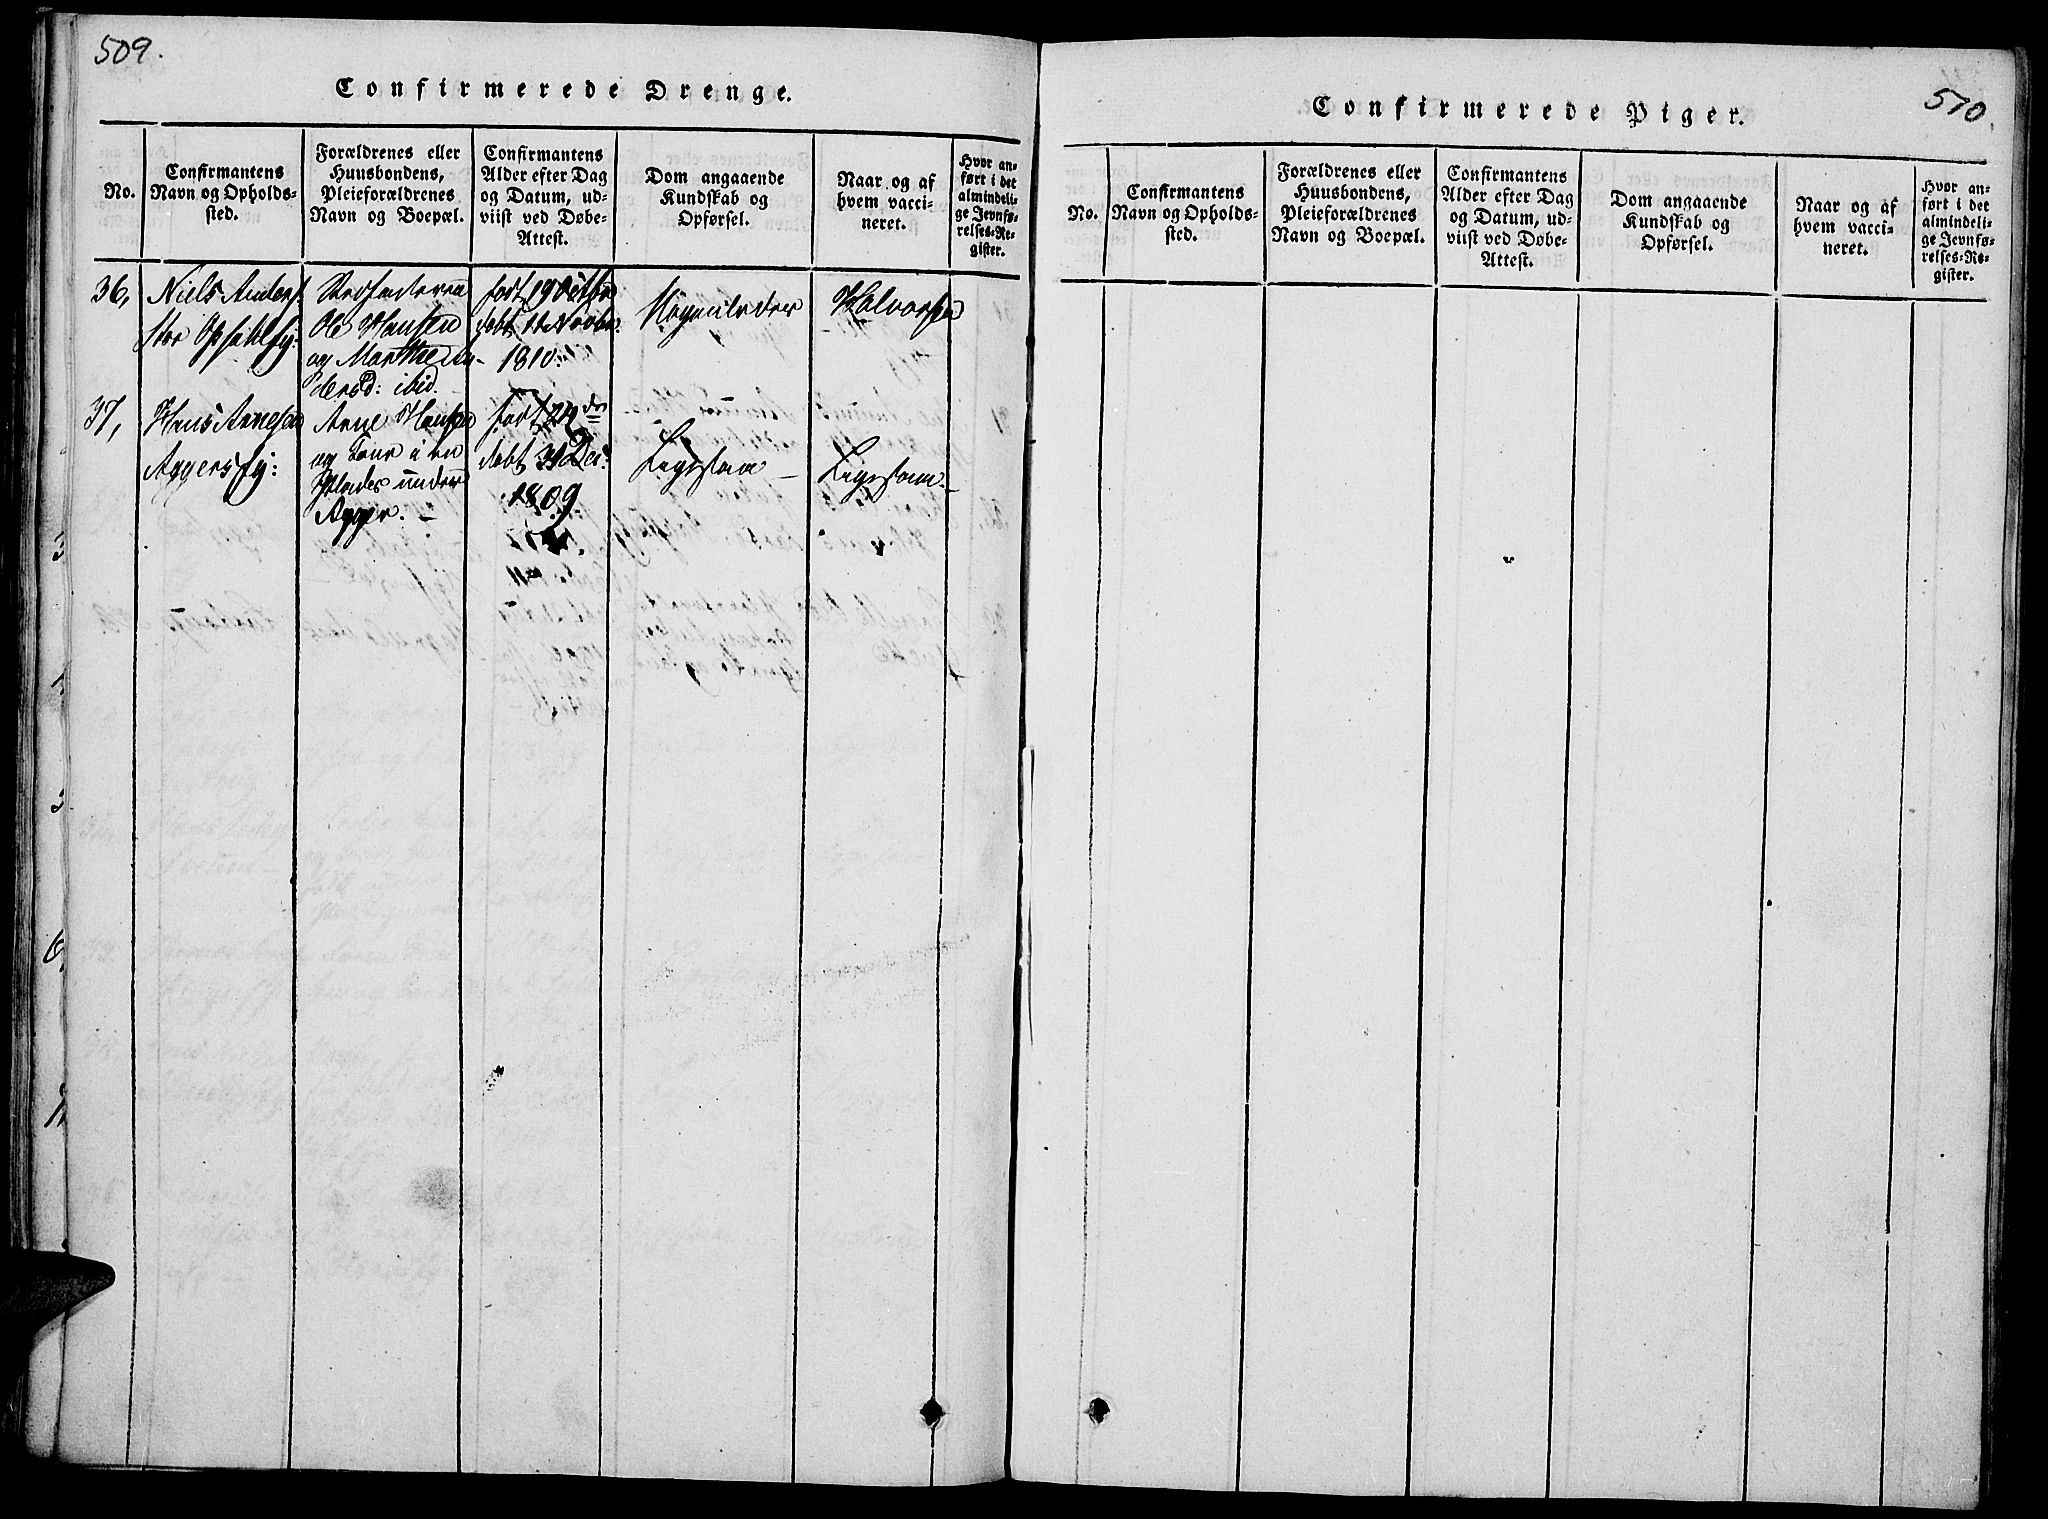 509.
Confirmerede Drenge.
No.
Confirmantens
Navn og Opholds-
sted.
Forældrenes eller
Huusbondens,
Pleieforældrenes
Navn og Boepæl.
Confirmantens
Alder efter Dag
og Datum, ud-
viist ved Døbe-
Attest.
Dom angaaende
Kundskab og
Opførsel.
Naar og af
hvem vacci-
neret.
Hvor an-
ført i det
almindeli-
ge Jevnfø-
relses-Re-
gister.
36,
Niels Anders:
Stor Opsahlej:
Ole Hansen
og Marthe An-
dersd: ibid.
født 19 Octbr
døbt 11 Novbr.
1810.
Halvorsen
37,
Hans Arnesen
Aggersej:
Arne Hansen
og Kone i en
Pladse under
Agger. –
født 24de
døbt 31 Dec:
1809.
Ligesaa –
Ligesaa. –
510.
Confirmerede Piger.
No.
Confirmantens
Navn og Opholds-
sted.
Forældrenes eller
Huusbondens,
Pleieforældrenes
Navn og Boepæl.
Confirmantens
Alder efter Dag
og Datum, ud-
viist ved Døbe-
Attest.
Dom angaaende
Kundskab og
Opførsel.
Naar og af
hvem vacci-
neret.
Hvor an-
ført i det
almindeli-
ge Jevnfø-
relses-Re-
gister.